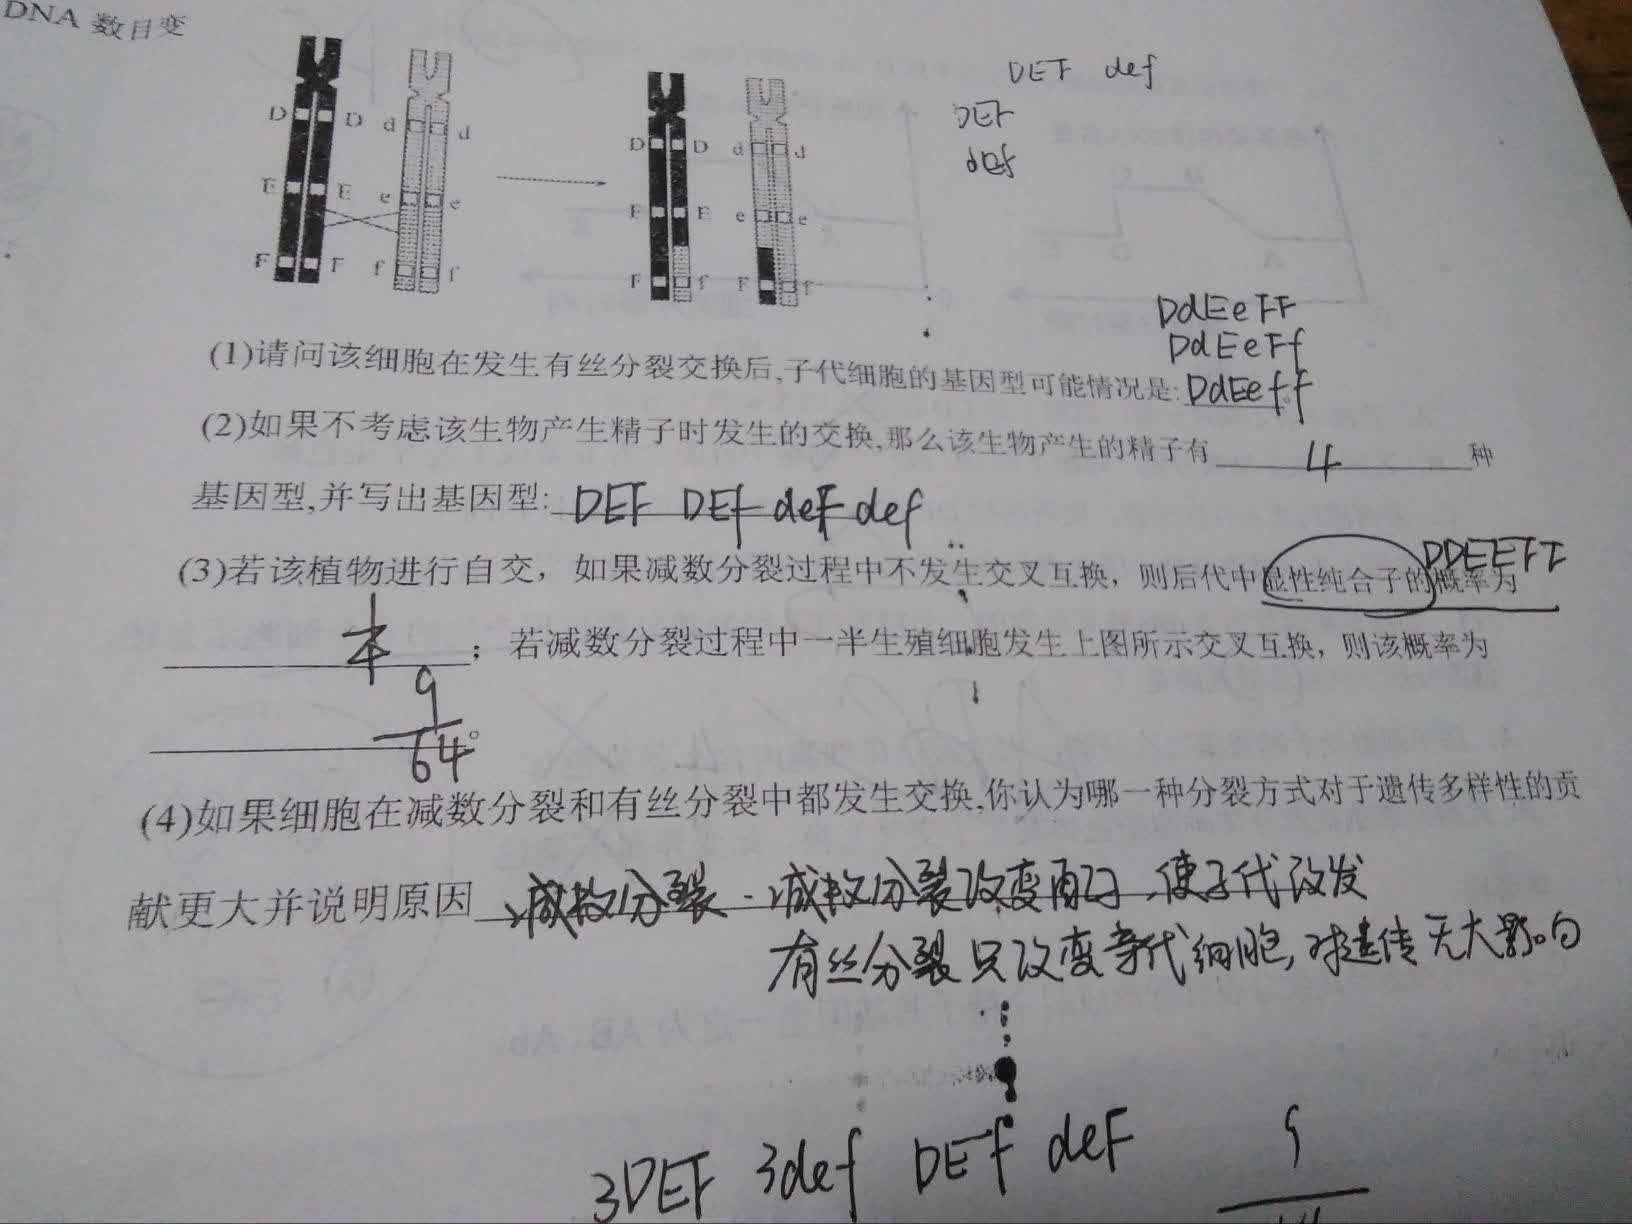 DNA 数目变
DEF def
DEF
def
D D d d
E E e e
F F f f
D D d d
E E e e
F f F f
DdEeFF
DdEeFf
(1)请问该细胞在发生有丝分裂交换后,子代细胞的基因型可能情况是:DdEeff
(2)如果不考虑该生物产生精子时发生的交换,那么该生物产生的精子有 4 种
基因型,并写出基因型: DEF DEf deF def
(3)若该植物进行自交，如果减数分裂过程中不发生交叉互换，则后代中显性纯合子的概率为
DDEEFF
1/4 ；若减数分裂过程中一半生殖细胞发生上图所示交叉互换，则该概率为
9/64。
(4)如果细胞在减数分裂和有丝分裂中都发生交换,你认为哪一种分裂方式对于遗传多样性的贡
献更大并说明原因 减数分裂．减数分裂改变配子,使子代改发
有丝分裂只改变亲代细胞,对遗传无大影响
一定为AB、Ab.
3DEF 3def DEf deF 9